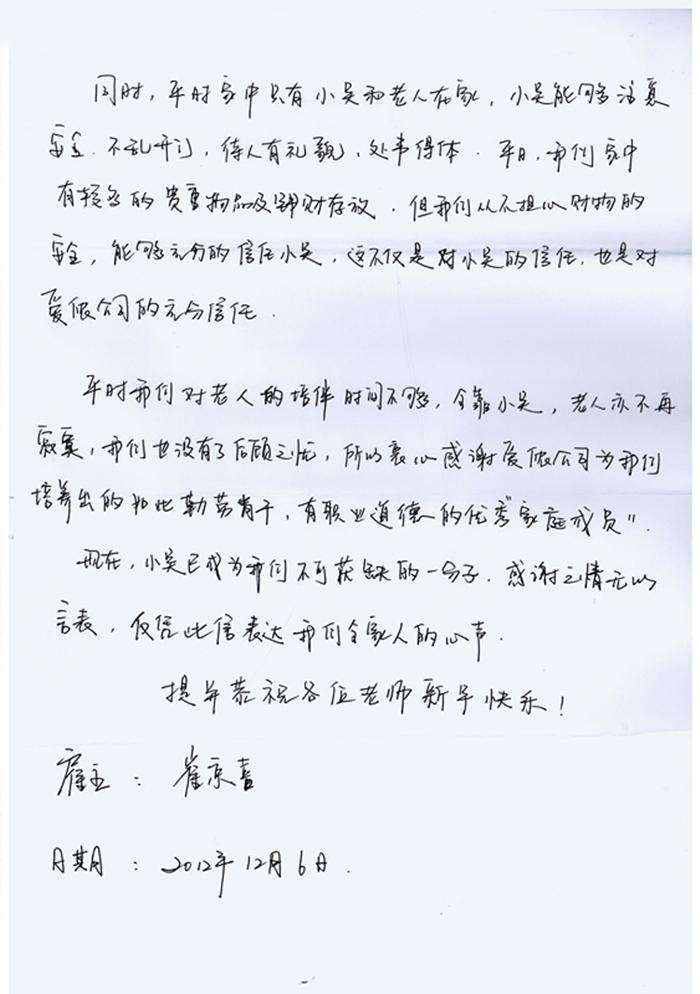 同时，平时家中只有小吴和老人在家，小吴能够注意
安全．不乱开门，待人有礼貌，处事得体．平日，我们家中
有较多的贵重物品及钱财存放．但我们从不担心财物的
安全，能够充分的信任小吴，这不仅是对小吴的信任．也是对
爱侬公司的充分信任．
平时我们对老人的培伴时间不够，全靠小吴，老人亦不再
寂寞，我们也没有了后顾之忧，所以衷心感谢爱侬公司为我们
培养出的如此勤劳肯干，有职业道德的优秀“家庭成员”．
现在，小吴已成为我们不可获缺的一分子．感谢之情无以
言表，仅凭此信表达我们全家人的心声．
提前恭祝各位老师新年快乐！
雇主：崔京喜
日期：2012年12月6日．